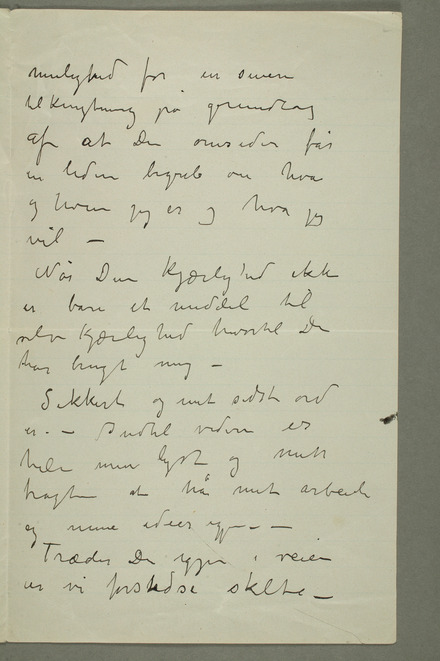 mulighed for en senere
tilknytning på grundlag
af at De omsider får
en liden begreb om hva
og hvem jeg er og hva jeg
vil –
Når Deres Kjærlighed ikke
er bare et middel til
selv Kjærlighed hvortil De
har brugt mig –
Sikkert og mit sidste ord
er. – Indtil videre er
hele min lyst og
tragten at nå mit arbeide
og mine ideer igjen – –
Træder De igjen i veien
er vi forstedse skilte –